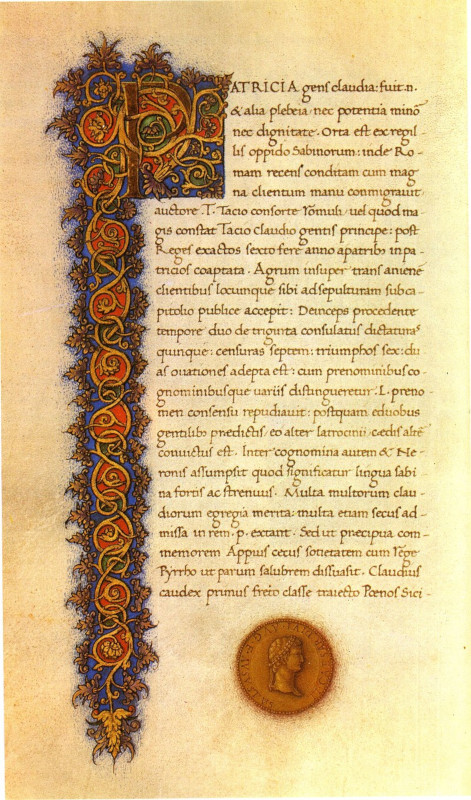 PATRICIA gens claudia: fuit .n.
& alia plebeia, nec potentia minor
nec dignitate. Orta est ex regil-
lis oppido Sabinorum: inde Ro-
mam recens conditam cum mag-
na clientum manu conmigrauit
auctore T. Tacio consorte Romuli: uel quod ma-
gis constat Tacio claudio gentis principe: post
Reges exactos sexto fere anno a patribus in pa-
tricios coaptata. Agrum insuper trans aniene
clientibus locumque sibi ad sepulturam sub ca-
pitolio publice accepit: Deinceps procedente
tempore duo de triginta consulatus dictaturas
quinque: censuras septem: triumphos sex: du-
as ouationes adepta est: cum prenominibus co-
gnominibusque uariis distingueretur. L. preno-
men consensu repudiauit: postquam e duobus
gentilibus prædictis eo alter latrocinii, cædis alter
conuictus est. Inter cognomina autem & Ne-
ronis assumpsit quod significatur lingua sabi-
na fortis ac strenuus. Multa multorum clau-
diorum egregia merita: multa etiam secus ad-
missa in rem .p. extant. Sed ut precipua com-
memorem Appius cecus sotietatem cum Rege
Pyrrho ut parum salubrem dissuasit. Claudius
caudex primus freto classe traiecto Pœnos Sici-